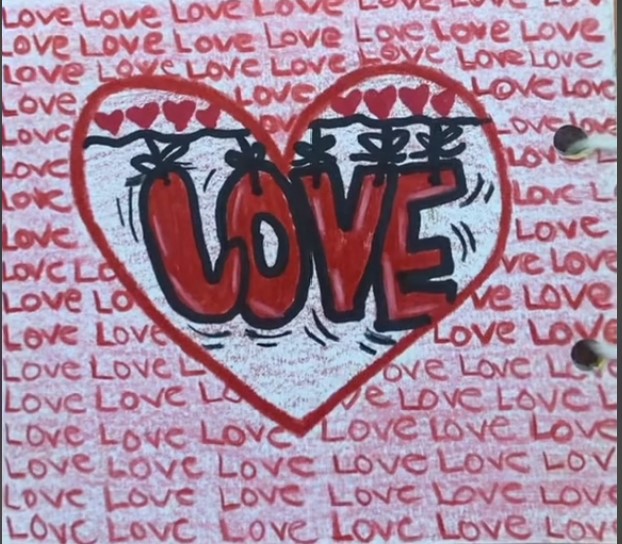 Love Love Love Love Love Love
Love Love Love Love Love Love Love
Love Love Love Love Love Love
Love Love Love Love
Love Love Love
Love Lov
Love LOVE Love L
Love Love
Love Lo ve Love
Love Lo ve Love
Love Love Love Love
Love Love L ove Love Lo
Love Love Lo ve Love Love Love
Love Love Love Love Love Love
Love Love Love Love Love Lov
Love Love Love Love Love Love
Love Love Love Love Love Love